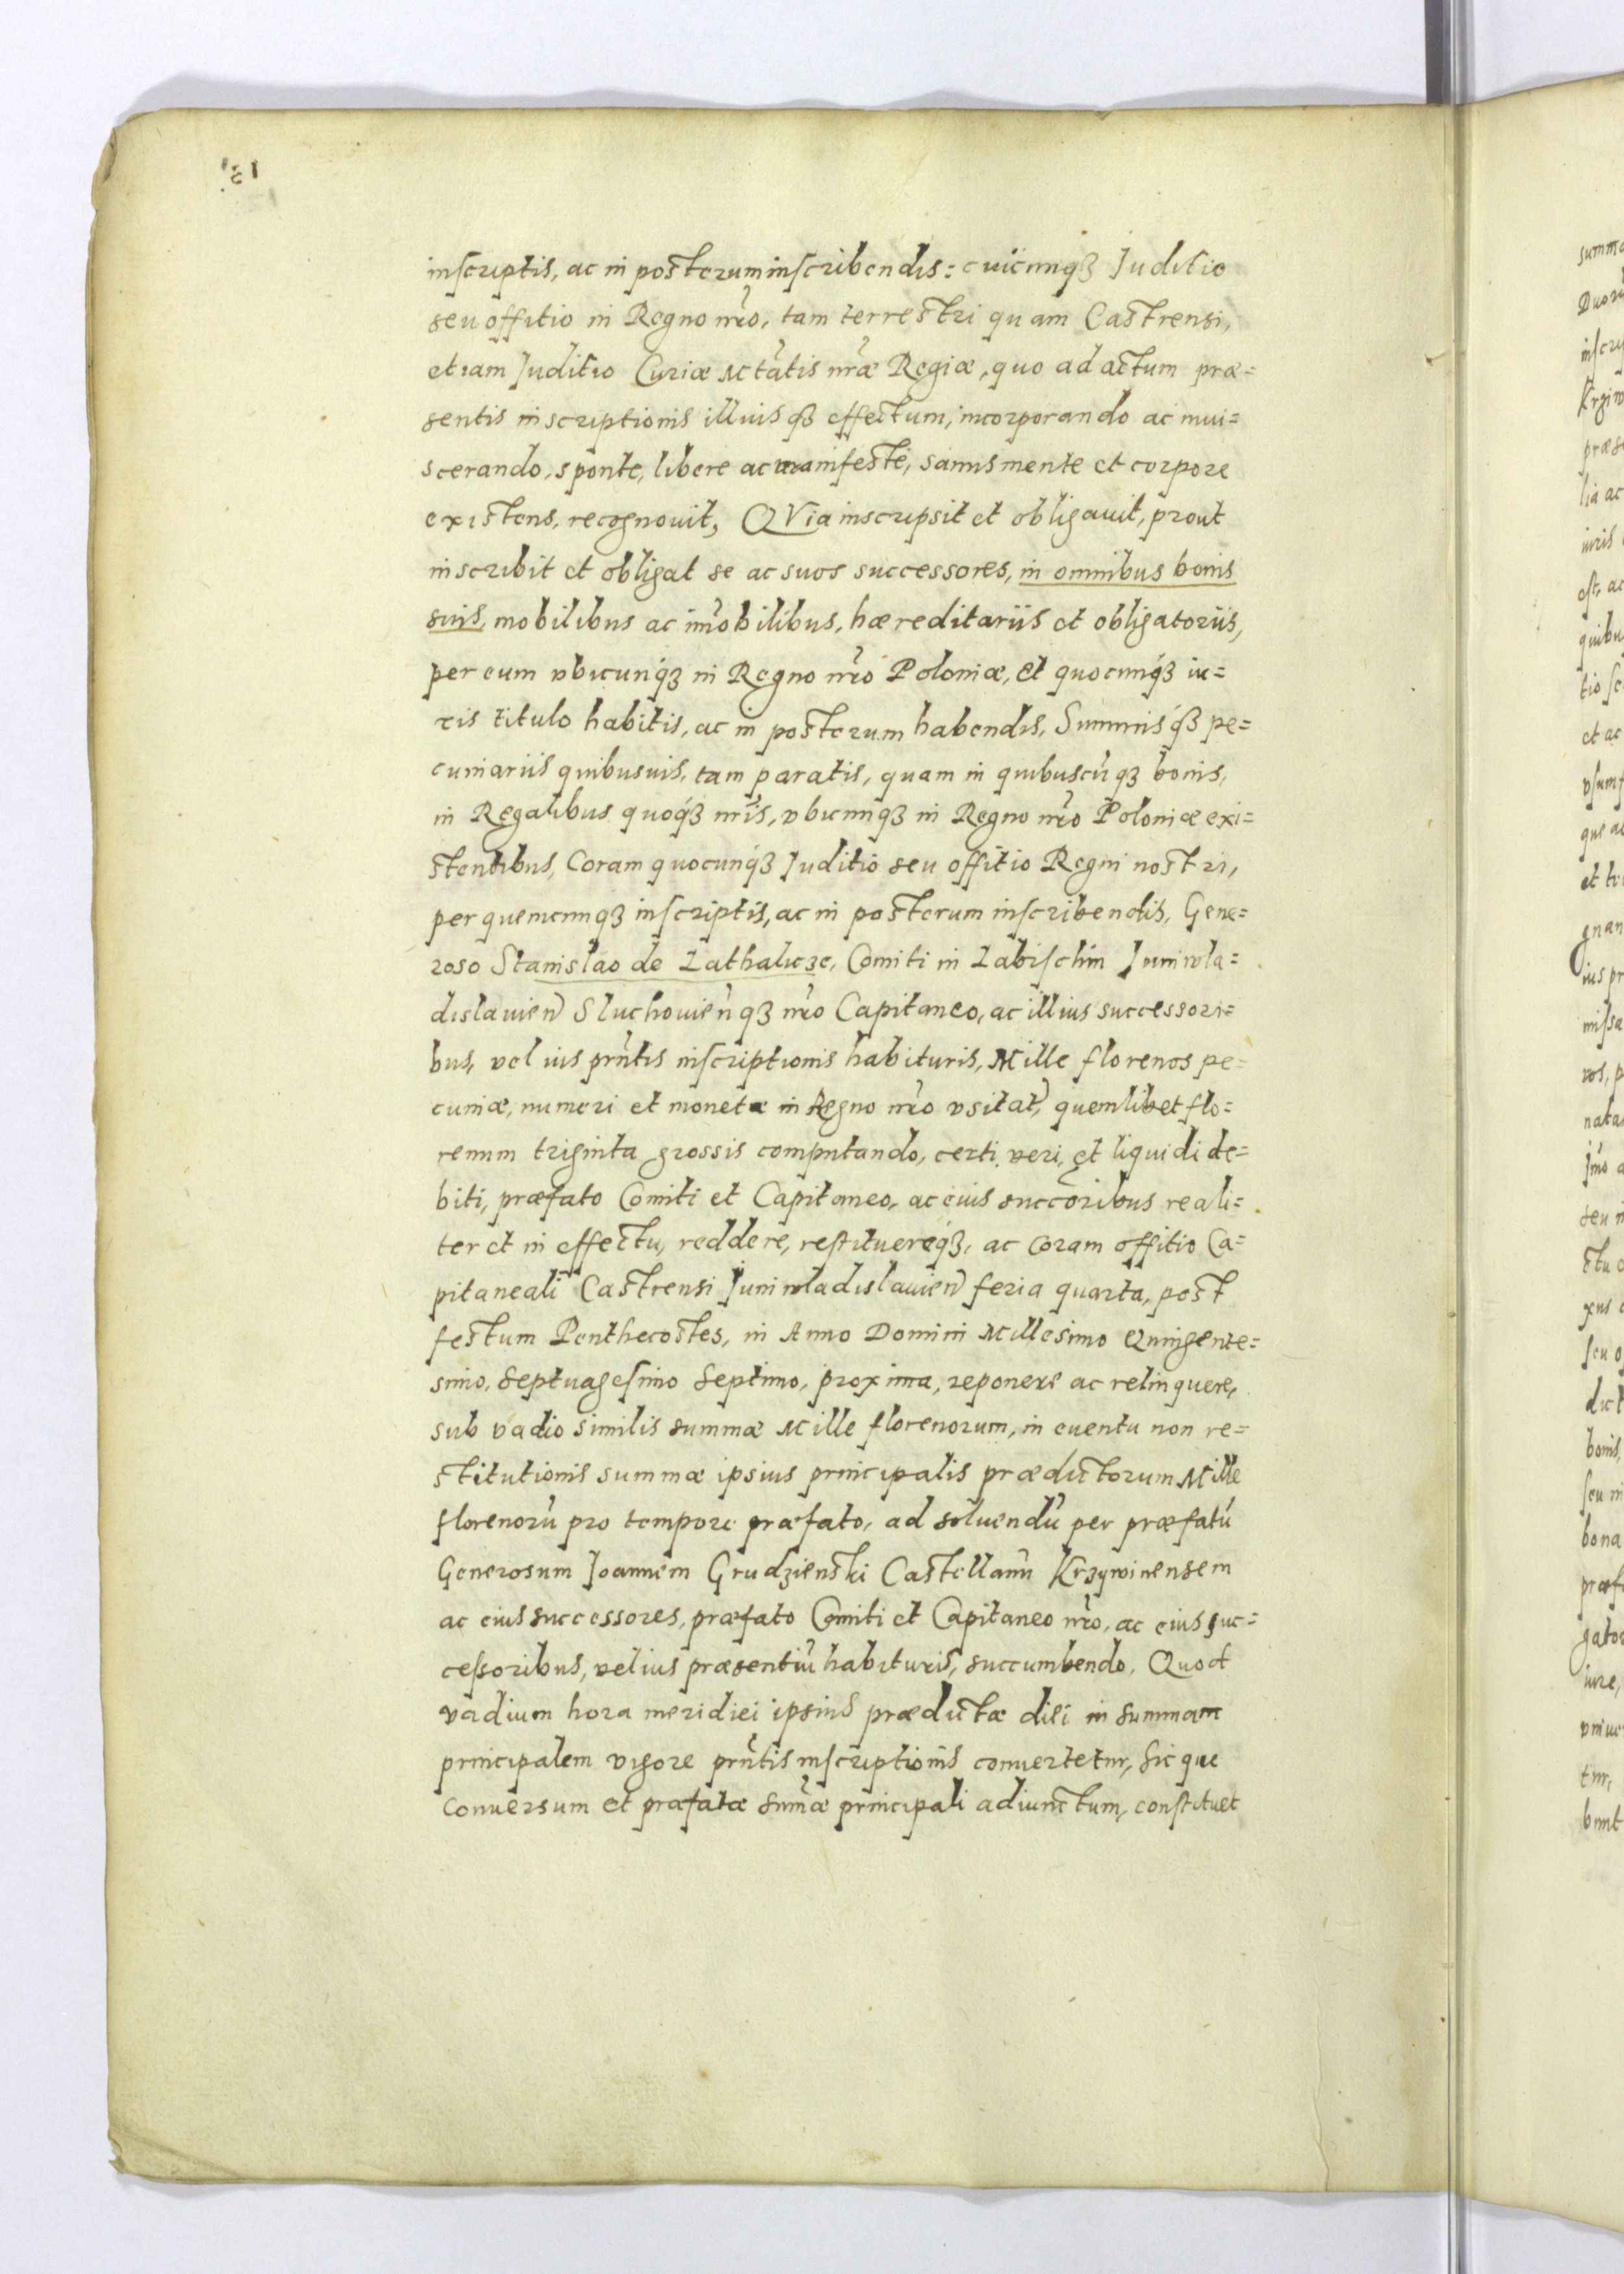 inscriptis, ac in posterum inscribendis: cuicunq3 Juditio
seu offitio in Regno nr̃o, tam terrestri quam Castrensi,
etiam Juditio Curiæ Mctãtis nr̃æ Regiæ, quo ad actum præ=
sentis inscriptionis illiusq3 effectum, incorporando ac inui=
scerando, sponte, libere ac manifeste, sanus mente et corpore
existens, recognouit, QVia inscripsit et obligauit, prout
inscribit et obligat se ac suos successores, in omnibus bonis
suis, mobilibus ac im̃obilibus, hæreditariis et obligatoriis,
per eum vbicunq3 in Regno nr̃o Poloniæ, et quocunq3 iu=
ris titulo habitis, ac in posterum habendis, Summisq3 pe=
cuniariis quibusuis, tam paratis, quam in quibuscũq3 bonis,
in Regalibus quoq3 nr̃is, vbicunq3 in Regno nr̃o Poloniæ exi=
stentibus, Coram quocunq3 Juditio seu offitio Regni nostri,
per quemcunq3 inscriptis, ac in posterum inscribendis, Gene=
roso Stanislao de Lathalicze, Comiti in Labischin Juniwla=
dislauien̄ Sluchouien̄q3 nr̃o Capitaneo, ac illius successori=
bus, vel ius prñtis inscriptionis habituris, Mille florenos pe=
cuniæ, numeri et monetæ in Regno nr̃o vsitat, quemlibet flo=
renum triginta grossis computando, certi, veri, et liquidi de=
biti, præfato Comiti et Capitaneo, ac eius succõribus reali=
ter et in effectu, reddere, restituereq3, ac coram offitio Ca=
pitaneali Castrensi Juniwladislauien̄ feria quarta, post
festum Penthecostes, in Anno Domini Millesimo Quingente=
simo, Septuagesimo Septimo, proxima, reponere ac relinquere,
sub vadio similis summæ Mille florenorum, in euentu non re=
stitutionis summæ ipsius principalis prædictorum Mille
florenorũ pro tempore præfato, ad soluendũ per præfatũ
Generosum Joannem Grudzienski Castellanũ Krzywinensem
ac eius successores, præfato Comiti et Capitaneo nr̃o, ac eius suc=
cessoribus, vel ius præsentiũ habituris, succumbendo. Quod
vadium hora meridiei ipsius prædictæ diei in summam
principalem vigore prñtis inscriptionis conuertetur, sicque
conuersum et præfatæ sum̃æ principali adiunctum, constituet